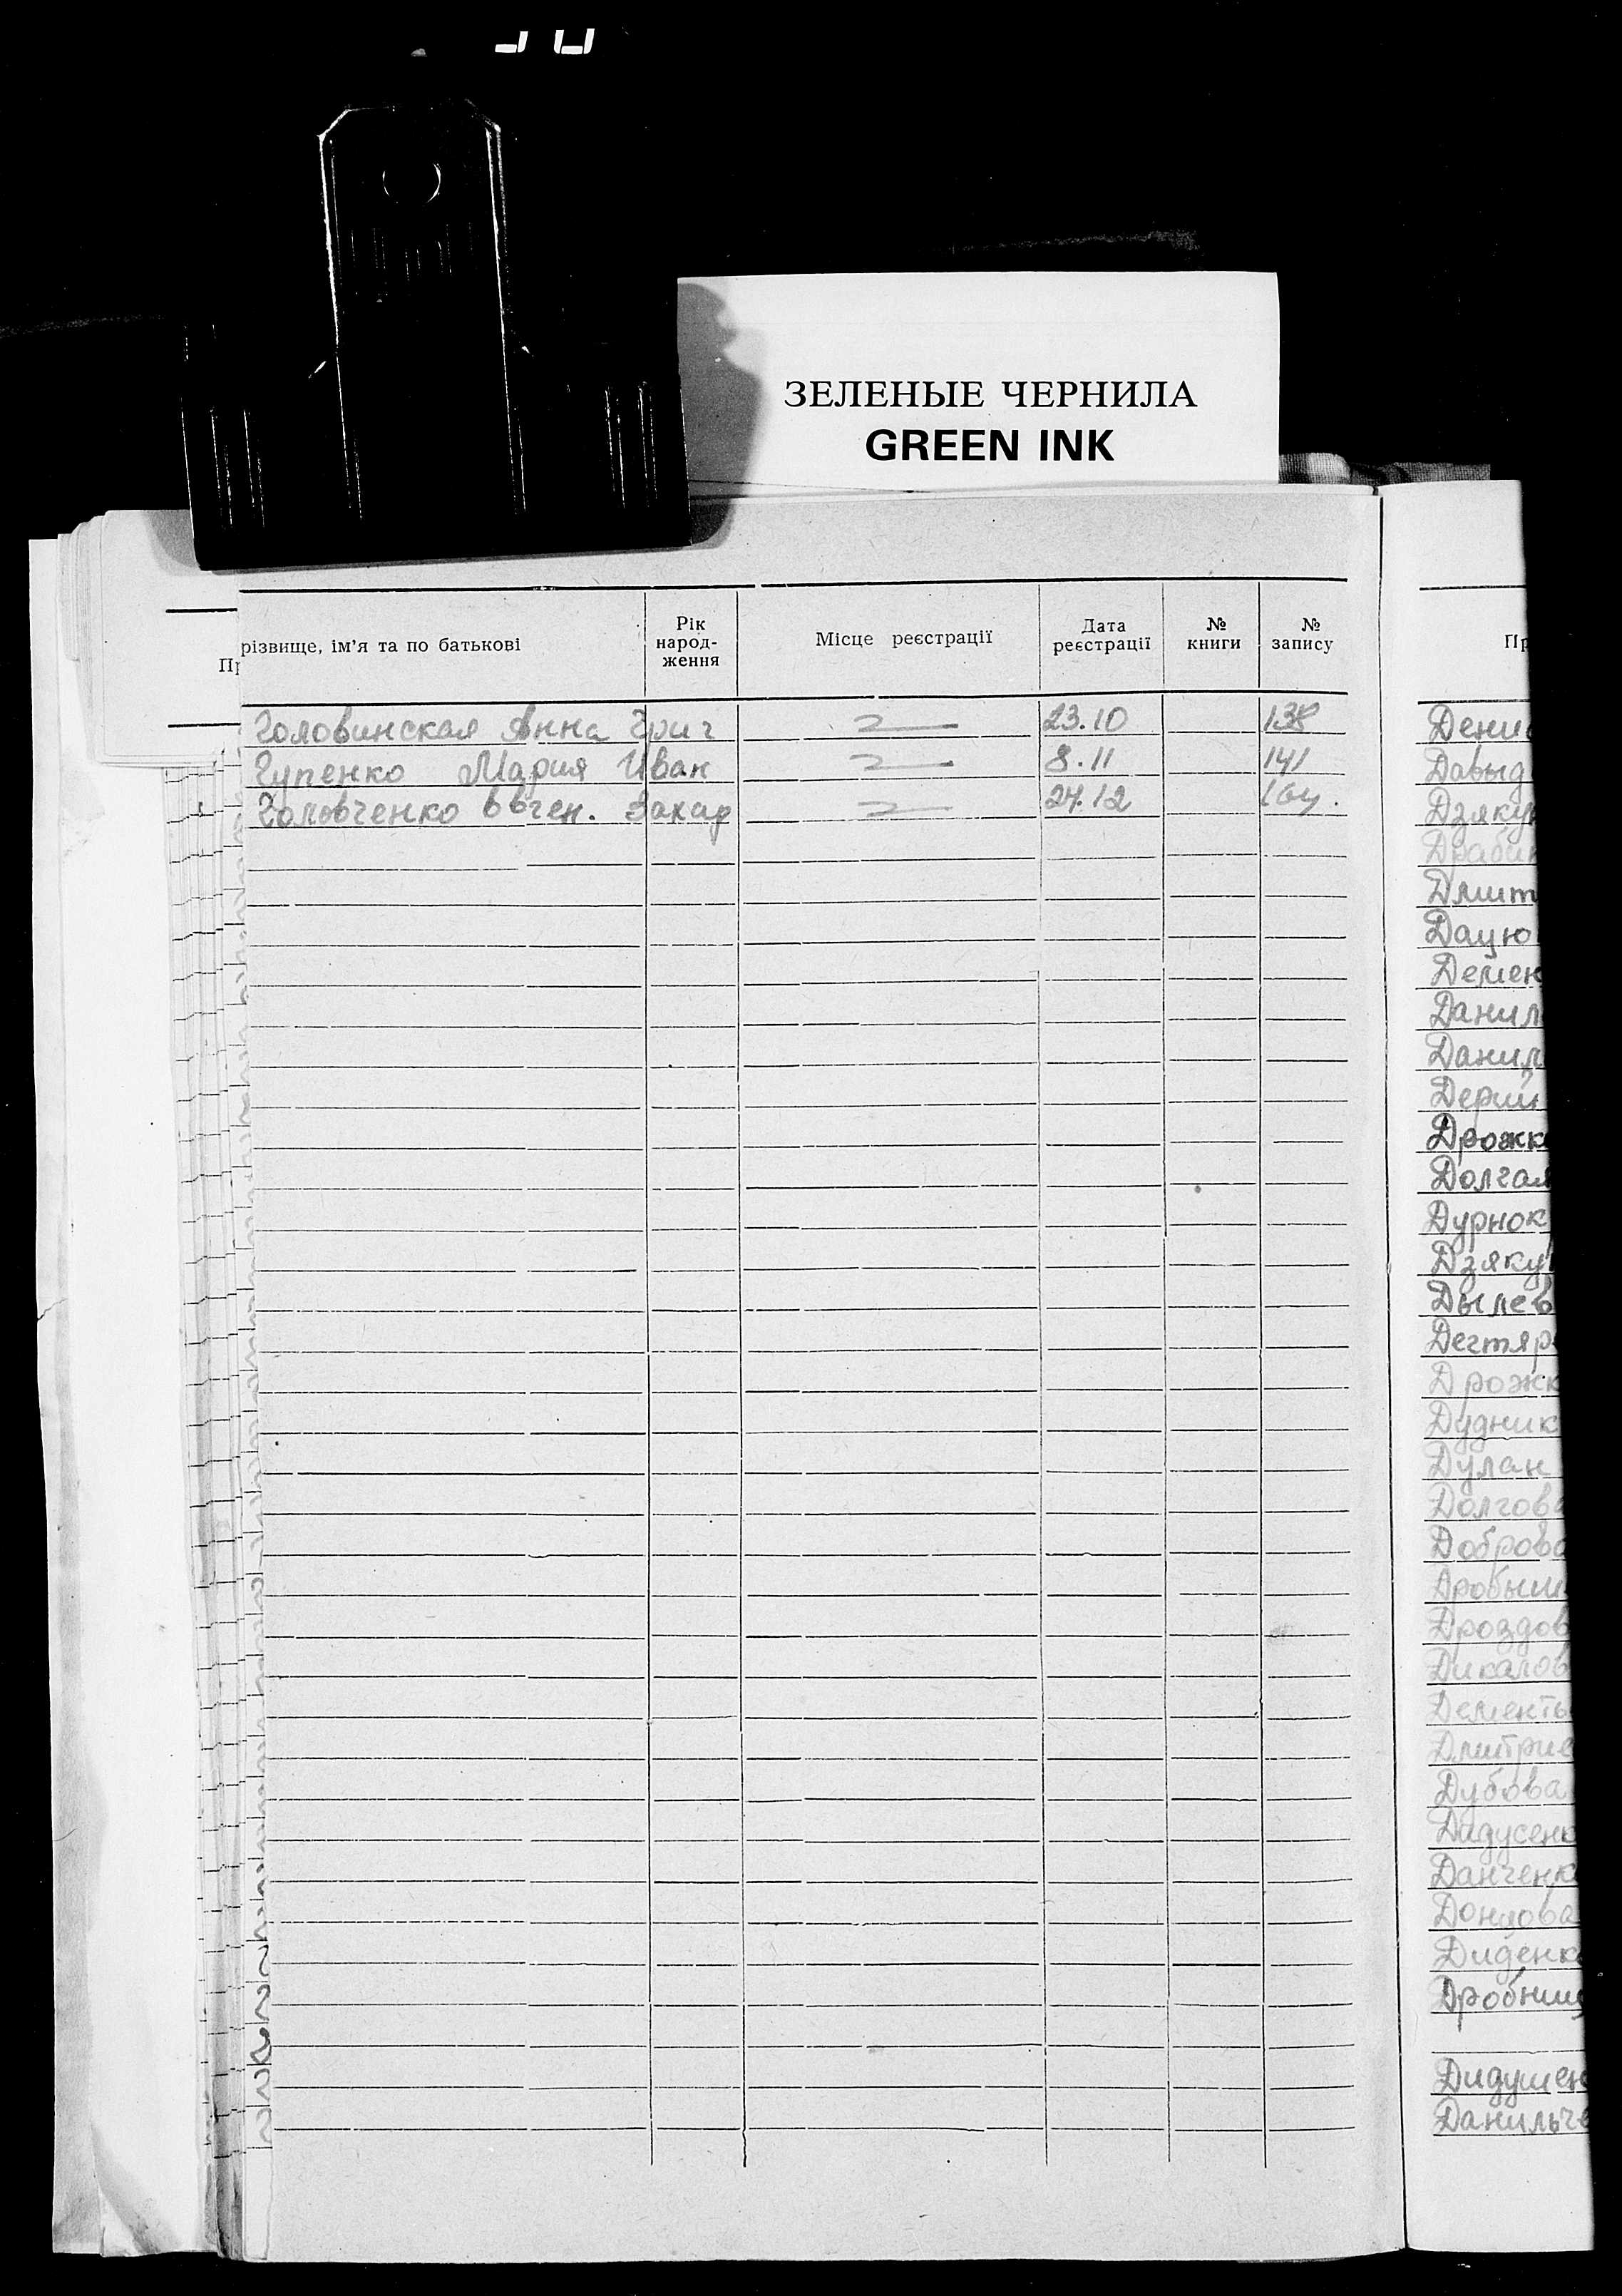 ЗЕЛЕНЫЕ ЧЕРНИЛА
GREEN INK
Пр
різвище, ім'я та по батькові
Рік народ-ження
Місце реєстрації
Дата реєстрації
№ книги
№ запису
Головинская Анна Григ 23.10 138
Гупенко Мария Иван 8.11 141
Головченко Евген. Захар 24.12
Пр
Дени
Давыд
Дзяку
Драби
Дмит
Дацю
Демен
Данил
Данил
Дерий
Дрожк
Долгая
Дурнок
Дзяку
Дылев
Дегтяр
Дрожк
Дудник
Дулан
Долгов
Доброво
Дробыш
Дроздов
Дикалов
Дементь
Дмитрие
Дубова
Дидусенк
Данченк
Донцова
Диденк
Дробниц
Дидушен
Данильче